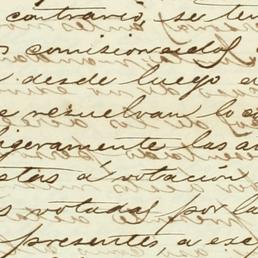 contrario, se ten
s comisionados
desde luego e
e resuelvan lo co
ligeramente las a
stas á votación
s votadas por la
presentes, a exc